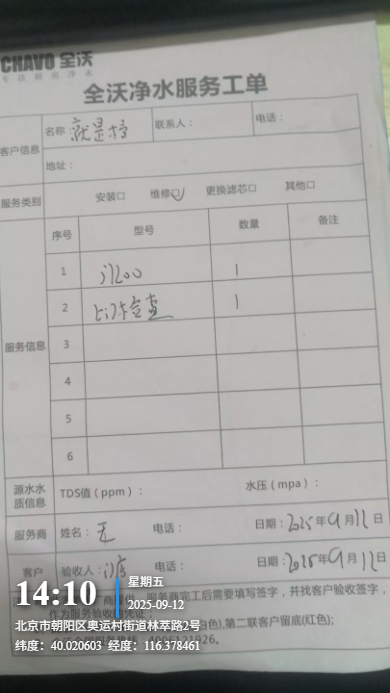 CHAVO 全沃
专注商用净水
全沃净水服务工单
客户信息
名称: 就是
联系人:
电话:
地址:
服务类别
安装□ 维修□ 更换滤芯□ 其他□
服务信息
序号 型号 数量 备注
1 1
2 上门检查 1
3
4
5
6
源水水质信息
TDS值(ppm):
水压(mpa):
服务商
姓名: 无
电话:
日期: 2025年9月12日
客户
验收人: 门店
电话:
日期: 2025年9月12日
服务商完工后需要填写签字,并找客户验收签字,
作为服务验收
色),第二联客户留底(红色);
14:10
星期五
2025-09-12
北京市朝阳区奥运村街道林萃路2号
纬度: 40.020603 经度: 116.378461